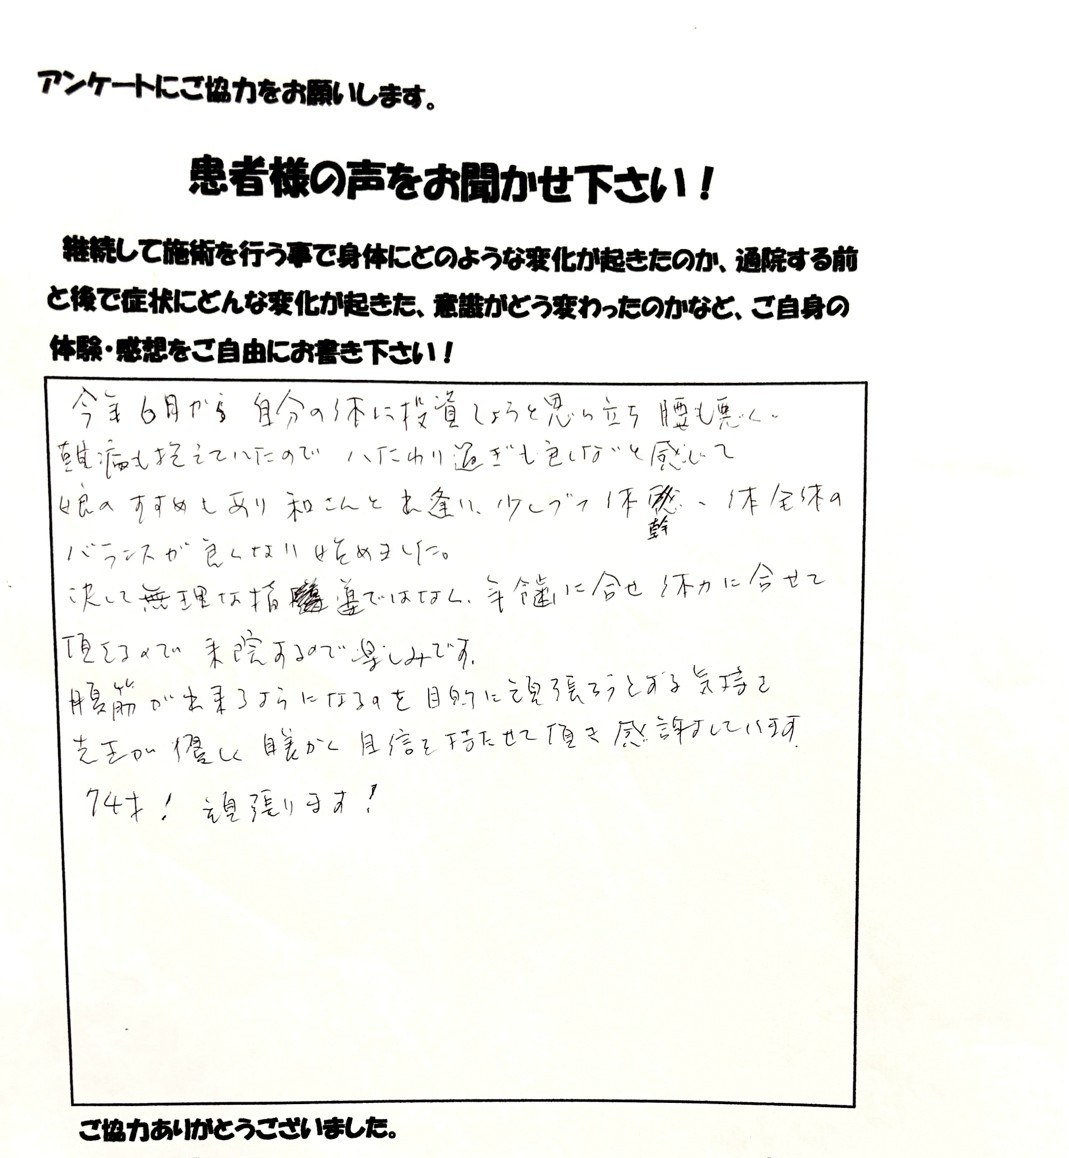 アンケートにご協力をお願いします。
患者様の声をお聞かせ下さい！
継続して施術を行う事で身体にどのような変化が起きたのか、通院する前
と後で症状にどんな変化が起きた、意識がどう変わったのかなど、ご自身の
体験・感想をご自由にお書き下さい！
今年6月から 自分の体に投資しようと思い立ち 腰も悪く、
難病も抱えていたので いたわり過ぎも良しなと感じて
娘のすすめもあり 和さんと出逢い、少しづつ体幹、体全体の
バランスが良くなり始めました。
決して無理な指導ではなく、年齢に合せ 体力に合せて
頂けるので 来院するので楽しみです。
腹筋が出来るようになるのを目的に頑張ろうとする気持を
先生が優しく 暖かく 自信を持たせて頂き 感謝しています。
74才！ 頑張ります！
ご協力ありがとうございました。